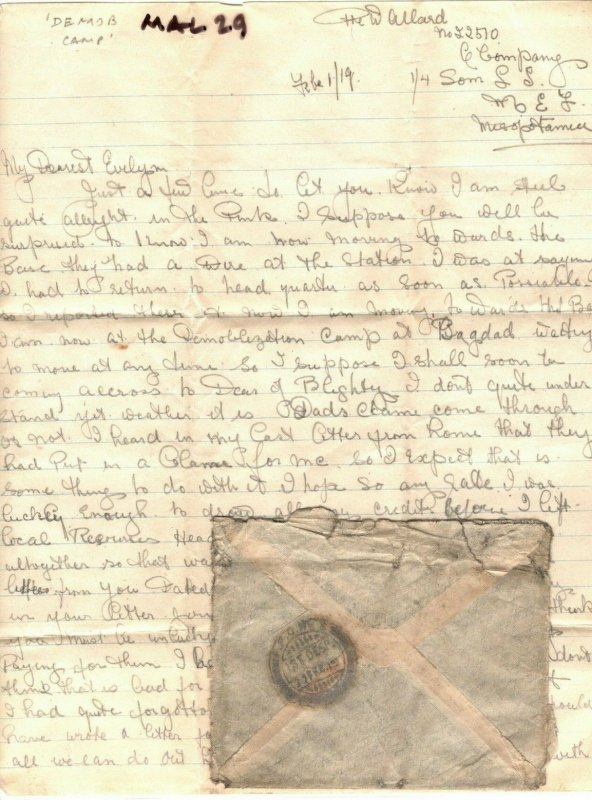 'DEMOB
CAMP'
MAL 29
Pte W Allard
No 22510
C Company
1/4 Som L I.
M E F
Mesopotamia
Febe 1/19.
My Dearest Evelyn
Just a few lines to let you Know I am still
quite allright in the Pink, I suppose you will be
surprised to Know I am now moving towards the
Base they had a wire at the Station I was at saying
I had to return to head quarters as soon as Possiable
so I reported there & now I am moving to wards the Base
I am now at the Demoblezation Camp at Bagdad waiting
to move at any time so I suppose I shall soon be
coming accross to Dear old Blighty I dont quite under
stand yet weather it is Dads Claime come through
or not. I heard in my last letter from home that they
had Put in a Claime for me. so I expect that is
some thing to do with it I hope so any Rate I was
luckey enough to draw all my credits before I left
Local Resources Head
altogether so that was
letter from you Dated
in your letter think
you must be unlucky
Paying for them I dont
think that is bad for
I had quite forgotten should
have wrote a letter
all we can do out with